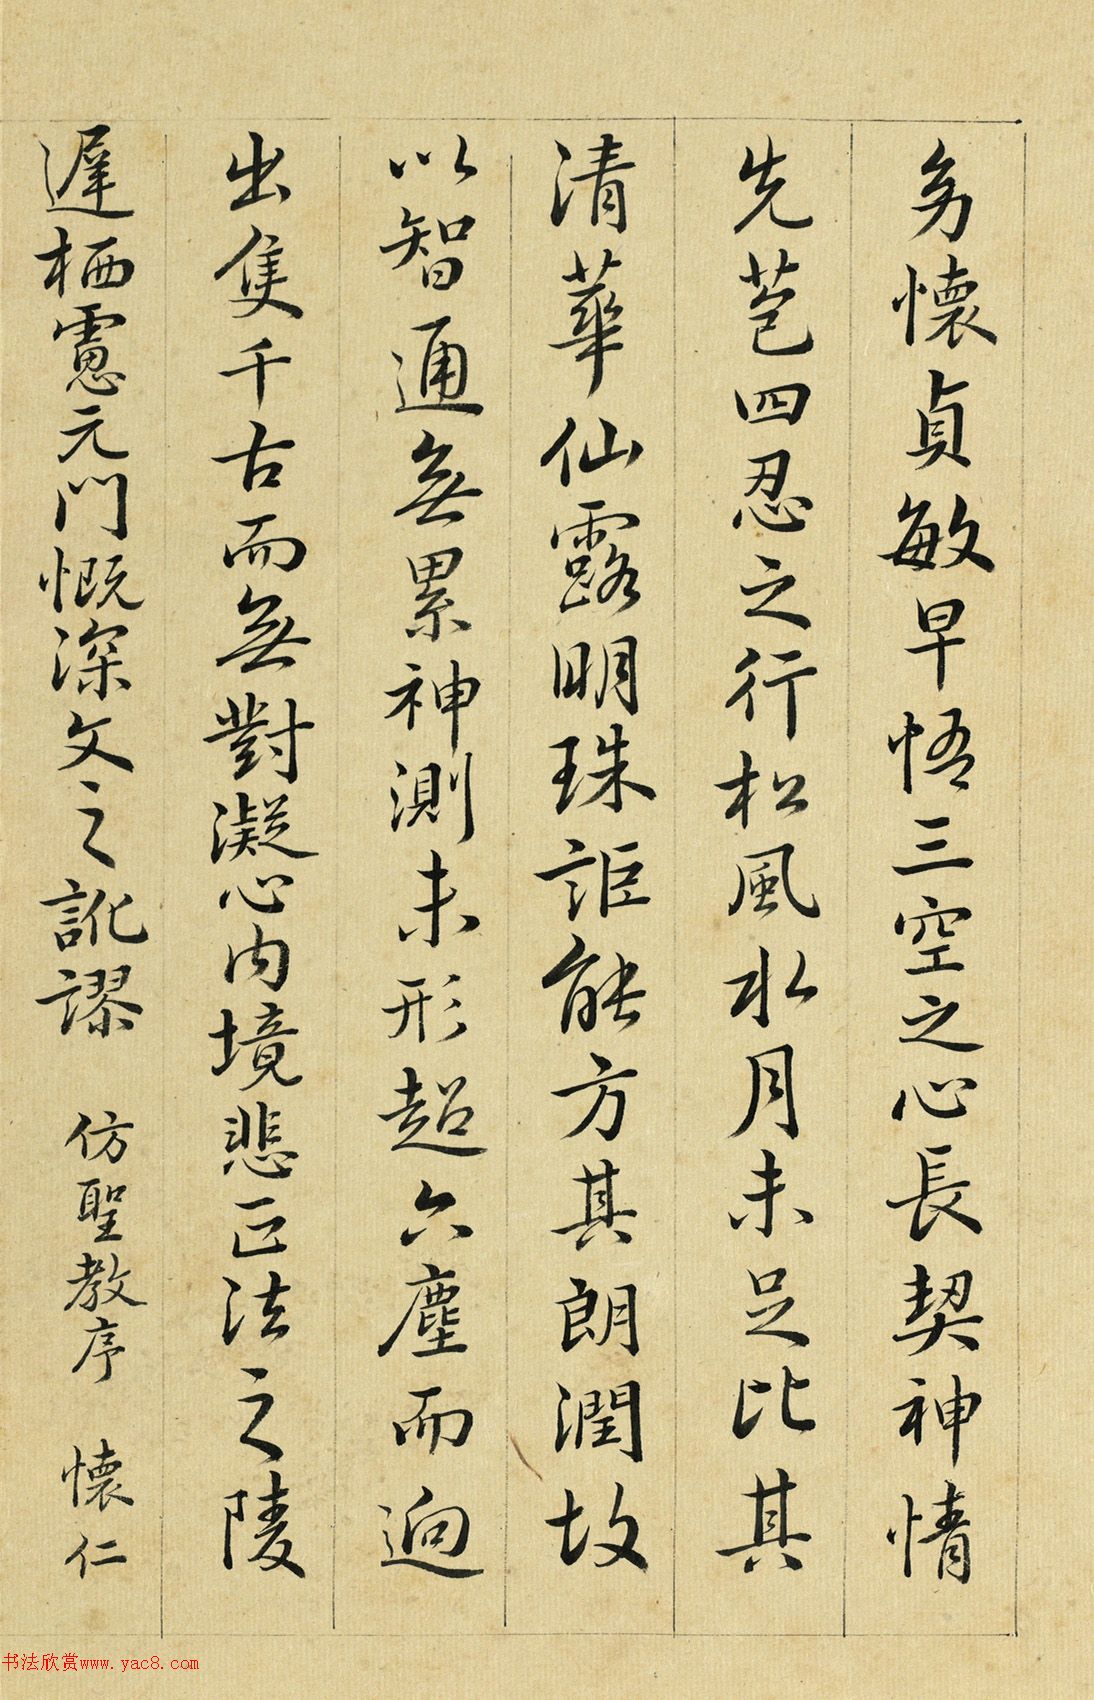 幼懷貞敏早悟三空之心長契神情
先苞四忍之行松風水月未足比其
清華仙露明珠詎能方其朗潤故
以智通無累神測未形超六塵而迥
出隻千古而無對凝心內境悲正法之陵
遲栖慮元門慨深文之訛謬 仿聖教序 懷仁
书法欣赏www.yac8.com